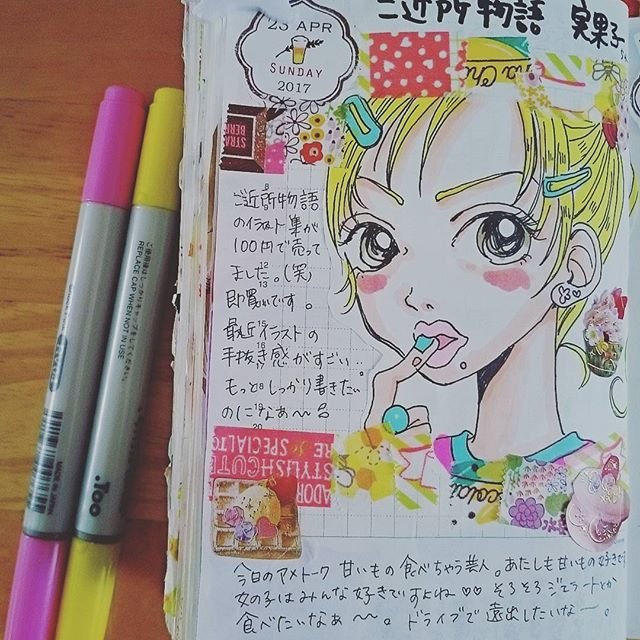 ご近所物語 実果子
23 APR
SUNDAY
2017
STRA
BERR
ご近所物語
のイラスト集が
100円で売って
ました。(笑)
即買いです。
最近イラストの
手抜き感がすごい..
もっとしっかり書きたい
のになぁ〜
STYLISH CUTE
RE SPECIALTO
ADOR
今日のアメトーク 甘いもの食べちゃう芸人。あたしも甘いもの好きです
女の子はみんな好きですよね♡♡ そろそろジェラートとか
食べたいなぁ〜〜。ドライブで遠出したいな〜。
ご使用後はしっかりキャップをしてください。
REPLACE CAP WHEN NOT IN USE
.Too
MADE IN JAPAN